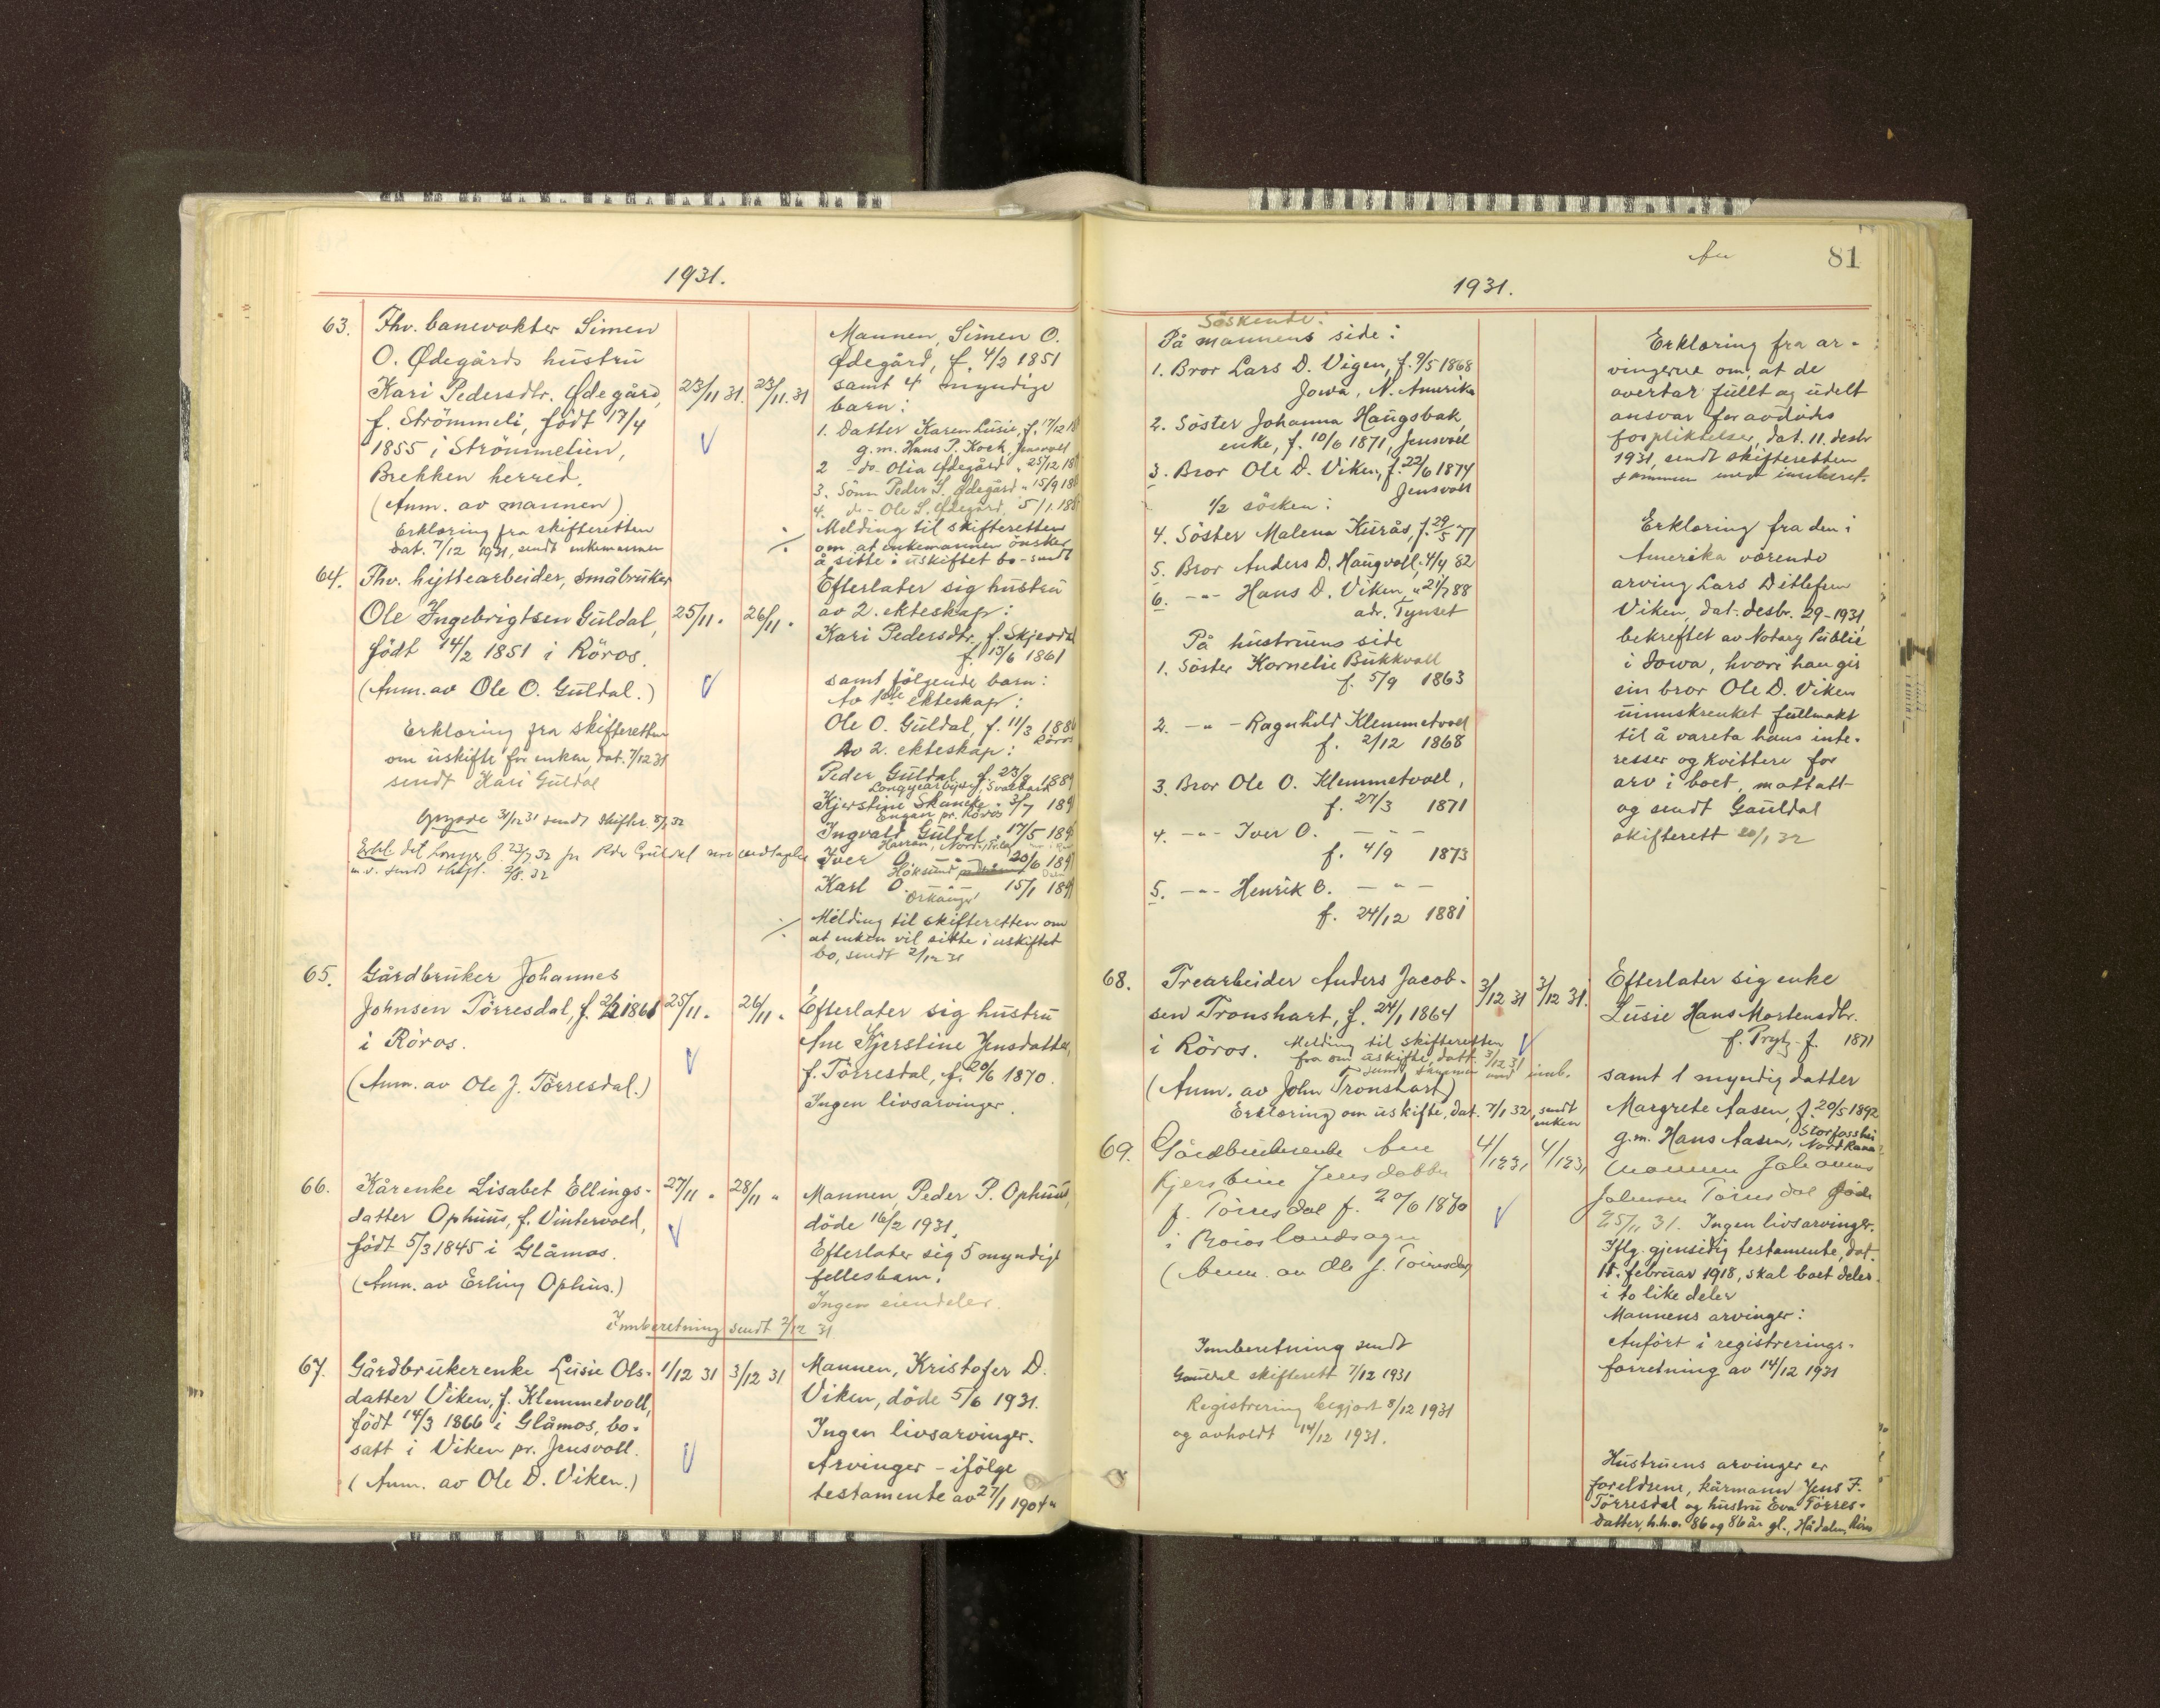 1931.
63. Fhv. banevokter Simen
O. Ødegårds hustru
Kari Pedersdtr. Ødegård, 23/11 31. 23/11. 31
f. Strömmeli, födt 17/4
1855 i Strömmelien,
Brekken herred.
(Anm. av mannen)
Erklæring fra skifteretten
dat. 7/12 1931, sendt enkemannen
Mannen, Simen O.
Ødegård, f. 4/2 1851
samt 4 myndige
barn:
1. Datter Karen Lusie, f. 17/12 18
g.m. Hans P. Kock, Jensvoll
2 - do - Olia Ødegård " 25/12 18
3. Sönn Peder S. Ødegård " 15/9 18
4. do - Ole S. Ødegård, 5/1. 188
Melding til skifteretten
om at enkemannen önsker
å sitte i uskiftet bo - sendt
64. Fhv. hyttearbeider, småbruker
Ole Ingebrigtsen Guldal, 25/11 " 26/11 "
födt 14/2 1851 i Röros.
(Anm. av Ole O. Guldal.)
Erklæring fra skifteretten
om uskifte for enken, dat. 7/12 31
sendt Kari Guldal
31/12 31 sendt skifter. 8/1 32
Erkl. det Longyear B. 23/7 32 fra Peder Guldal
m.v. sendt skift. 2/8. 32
Efterlater sig hustru
av 2. ekteskap:
Kari Pedersdtr., f. Skjevdal
f. 13/6 1861
samt fölgende barn:
Av 1ste ekteskap:
Ole O. Guldal, f. 11/3 1886
Röros
Av 2. ekteskap:
Peder Guldal, f. 23/8 1889
Longyearbyen, Svalbard
Kjerstine Skancke " 3/7 189
Engan pr. Röros
Ingvald Guldal " 17/5 189
Iver O. - " - 20/6 189
Höksund
Karl O. - " - 15/1 189
Orkanger
Melding til skifteretten om
at enken vil sitte i uskiftet
bo, sendt 2/12 31
65. Gårdbruker Johannes
Johnsen Törresdal, f. 2/2 1861 25/11 " 26/11 "
i Röros.
(Anm. av Ole J. Törresdal.)
Efterlater sig hustru
Ane Kjerstine Jensdatter,
f. Törresdal, f. 20/6 1870.
Ingen livsarvinger.
66. Kårenke Lisabet Ellings- 27/11 " 28/11 "
datter Ophuus, f. Vintervold,
födt 5/3 1845 i Glåmos.
(Anm. av Erling Ophus.)
Mannen, Peder P. Ophuus,
döde 16/2 1931.
Efterlater sig 5 myndige
fellesbarn.
Ingen eiendeler.
Innberetning sendt 2/12 31
67. Gårdbrukerenke Lusie Ols- 1/12 31 3/12 31
datter Viken, f. Klemmetvoll,
födt 14/3 1866 i Glåmos, bo-
satt i Viken pr. Jensvoll.
(Anm. av Ole D. Viken.)
Mannen, Kristofer D.
Viken, döde 5/6 1931.
Ingen livsarvinger.
Arvinger - ifölge
testamente av 27/1 1904 "
81
1931.
Söskende:
På mannens side:
1. Bror Lars D. Vigen, f. 9/5 1868
Jowa, N. Amerika
2. Söster Johanna Haugsbak,
enke, f. 10/6 1871, Jensvoll
3. Bror Ole D. Viken, f. 22/6 1874
Jensvoll
1/2 sösken:
4. Söster Malena Kurås, f. 29/5 77
5. Bror Anders D. Haugvoll, 4/4 82
6. - " - Hans D. Viken, " 21/7 88
adr. Tynset
På hustruens side
1. Söster Kornelie Bukkvoll
f. 5/9 1863
2. - " - Ragnhild Klemmetvoll
f. 2/12 1868
3. Bror Ole O. Klemmetvoll,
f. 27/3 1871
4. - " - Iver O. - " -
f. 4/9 1873
5. - " - Henrik O. - " -
f. 24/12 1881
Erklæring fra ar-
vingerne om, at de
overtar fullt og udelt
ansvar for avdödes
forpliktelser, dat. 11. desbr
1931, sendt skifteretten
sammen med innberet.
Erklæring fra den i
Amerika værende
arving Lars Ditlefsen
Viken, dat. desbr. 29-1931,
bekreftet av Notary Public
i Iowa, hvori han gir
sin bror Ole D. Viken
uinnskrenket fullmakt
til å vareta hans inte-
resser og kvittere for
arv i boet, mottatt
og sendt Gauldal
skifterett 20/1 32
68. Trearbeider Anders Jacob- 3/12 31 3/12 31.
sen Tronshart, f. 24/1 1864
i Röros. Melding til skifteretten
fra om uskifte, datt. 3/12 31
sendt sammen med innb.
(Anm. av John Tronshart)
Erklæring om uskifte, dat. 7/1 32, sendt
enken
Efterlater sig enke
Lusie Hans Mortensdtr.
f. Prytz - f. 1871
samt 1 myndig datter
Margrete Aasen, f. 20/5 1892
g.m. Hans Aasen, Storfosshei
Nord Rana
69. Gårdbrukerenke Ane 4/12 31 4/12 31
Kjerstine Jensdatter
f. Törresdal f. 20/6 1870
i Röros landsogn
(Anm. av Ole J. Törresdal)
Innberetning sendt
Gauldal skifterett 7/12 1931
Registrering begjært 8/12 1931
og avholdt 14/12 1931.
Mannen Johannes
Johnsen Törresdal döde
25/11 31. Ingen livsarvinger.
Iflg. gjensidig testamente, dat.
11. februar 1918, skal boet deles
i to like deler
Mannens arvinger:
Anfört i registrerings-
forretning av 14/12 1931
Hustruens arvinger er
foreldrene, kårmann Jens F.
Törresdal og hustru Eva Törres-
datter, h.h.v. 86 og 86 år gl., Hådalen, Röros